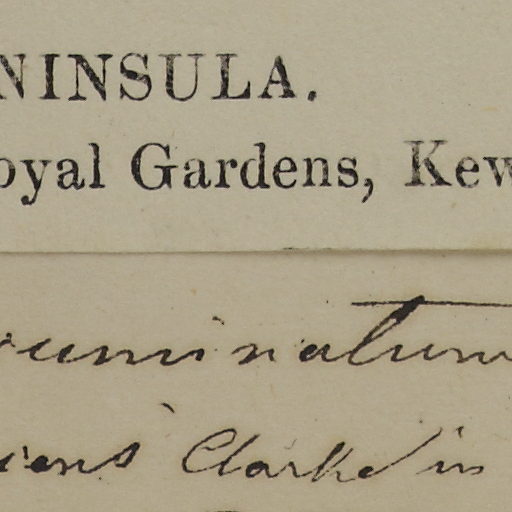 NINSULA.
oyal Gardens, Kew
uminatum
iens' Clarke in